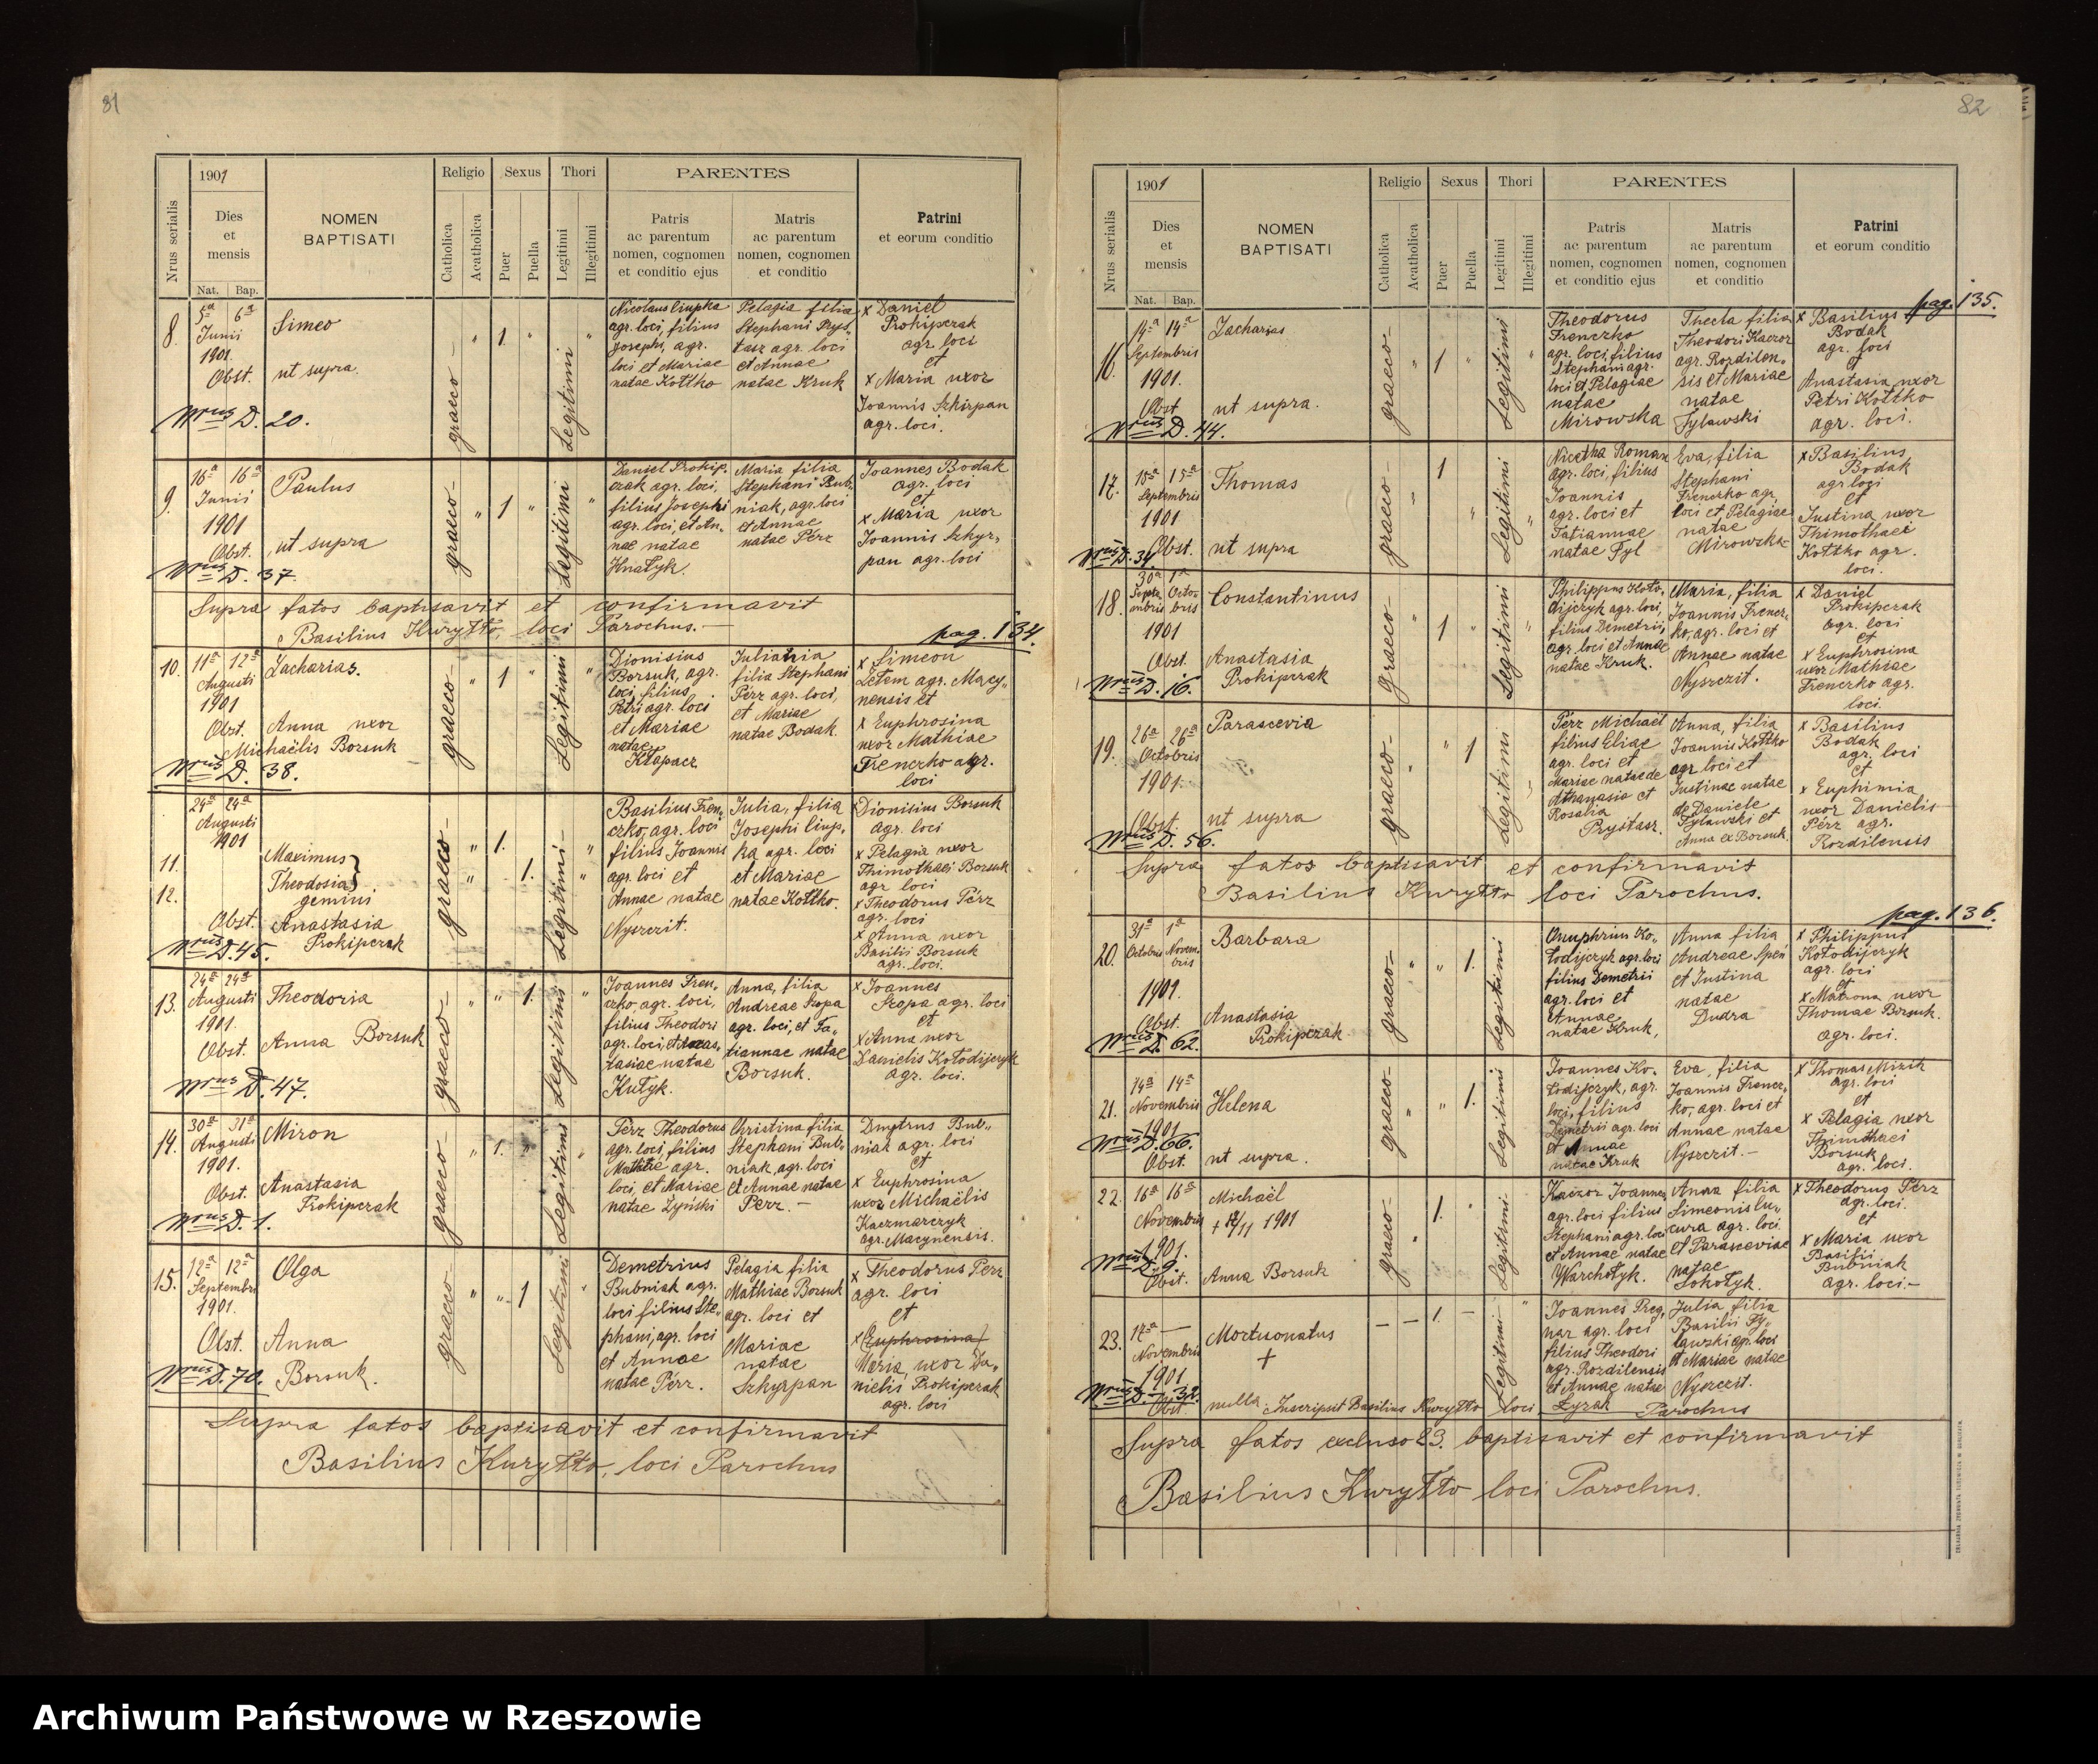 81
1901
Nrus serialis
Dies
et
mensis
Nat.
Bap.
NOMEN
BAPTISATI
Religio
Catholica
Acatholica
Sexus
Puer
Puella
Thori
Legitimi
Illegitimi
PARENTES
Patris
ac parentum
nomen, cognomen
et conditio ejus
Matris
ac parentum
nomen, cognomen
et conditio
Patrini
et eorum conditio
8.
5ª 6ª
Junii
1901.
Obst.
Nrus D. 20.
Simeo
ut supra.
graeco-
" 1 "
Legitimi
"
Nicolaus Ciupka
agr. loci, filius
Josephi, agr.
loci et Mariae
natae Kottko
Pelagia filia
Stephani Prys.
tasz agr. loci
et Annae
natae Kruk
x Daniel
Prokipczak
agr. loci
et
x Maria uxor
Joannis Szkirpan
agr. loci.
9.
16ª 16ª
Junii
1901
Obst.
Nrus D. 37.
Paulus
ut supra
graeco-
" 1 "
Legitimi
"
Daniel Prokip.
czak agr. loci,
filius Josephi
agr. loci et An.
nae natae
Hnatyk.
Maria filia
Stephani Bub.
niak, agr. loci
et Annae
natae Pérz
Joannes Bodak
agr. loci
et
x Maria uxor
Joannis Szkyr,
pan agr. loci
Supra fatos baptisavit et confirmavit
Basilius Kuryłło, loci Parochus.—
pag. 134.
10.
11ª 12ª
Augusti
1901
Obst.
Zacharias.
Anna uxor
Michaëlis Borsuk
Nrus D. 38.
graeco-
" 1 "
Legitimi
"
Dionisius
Borsuk, agr.
loci, filius
Petri agr. loci
et Mariae
natae
Kłapacz
Juliania
filia Stephani
Pérz agr. loci,
et Mariae
natae Bodak.
x Simeon
agr. Macy,
nensis et
x Euphrosina
uxor Mathiae
Frenczko agr.
loci
11.
12.
24ª 24ª
Augusti
1901
Obst.
Nrus D. 45.
Maximus
Theodosia
gemini
Anastasia
Prokipczak
graeco-
" 1.
" 1.
Legitimi-
"
"
Basilius Fren,
czko, agr. loci
filius Joannis
agr. loci et
Annae natae
Nyszczit.
Julia, filia
Josephi Ciup,
ka agr. loci
et Mariae
natae Kottko.
x Dionisius Borsuk
agr. loci
x Pelagia uxor
Thimothaei Borsuk
agr loci
x Theodorus Pérz
agr. loci
x Anna uxor
Basilii Borsuk
agr. loci.
13.
24ª 24ª
Augusti
1901.
Obst.
Nrus D. 47.
Theodoria
Anna Borsuk
graeco-
" " 1.
Legitimi
"
Joannes Fren,
czko, agr. loci,
filius Theodori
agr. loci, et Anas,
tasiae natae
Kutyk.
Anna, filia
Andreae Szopa
agr. loci, et Ta,
tiannae natae
Borsuk.
x Joannes
Szopa agr. loci
et
x Anna uxor
Danielis Kotodijczyk
agr. loci.
14.
30ª 31ª
Augusti
1901.
Obst.
Nrus D. 1.
Miron
Anastasia
Prokipczak
graeco-
" 1. "
Legitimi
"
Pérz Theodorus
agr. loci, filius
Mathiae agr.
loci, et Mariae
natae Żyński
Christina filia
Stephani Bub,
niak, agr. loci
et Annae natae
Perz.—
Dmytrus Bub,
niak agr. loci
et
x Euphrosina
uxor Michaëlis
Kaczmarczyk
agr. Macynensis.
15.
12ª 12ª
Septembris
1901.
Obst.
Nrus D. 70.
Olga
Anna
Borsuk.
graeco-
" " 1
Legitimi
"
Demetrius
Bubniak agr.
loci filius Ste,
phani, agr. loci
et Annae
natae Pérz.
Pelagia filia
Mathiae Borsuk
agr. loci et
Mariae
natae
Szkyrpan
x Theodorus Perz
agr. loci
et
x (Euphrosina)
Maria, uxor Da,
nielis Prokipczak
agr. loci
Supra fatos baptisavit et confirmavit
Basilius Kuryłło, loci Parochus
82
1901
Nrus serialis
Dies
et
mensis
Nat.
Bap.
NOMEN
BAPTISATI
Religio
Catholica
Acatholica
Sexus
Puer
Puella
Thori
Legitimi
Illegitimi
PARENTES
Patris
ac parentum
nomen, cognomen
et conditio ejus
Matris
ac parentum
nomen, cognomen
et conditio
Patrini
et eorum conditio
pag. 135.
16.
14ª 14ª
Septembris
1901.
Obst
Nrus D. 44.
Zacharias
ut supra.
graeco-
" 1 "
Legitimi
"
Theodorus
Frenczko
agr. loci, filius
Stephani agr.
loci et Pelagiae
natae
Mirowska
Thecla filia
Theodori Kaczor
agr. Rozdilen,
sis et Mariae
natae
Fylawski
x Basilius
Bodak
agr. loci
et
Anastasia uxor
Petri Kottko
agr. loci.
17.
15ª 15ª
Septembris
1901
Obst.
Nrus D. 31.
Thomas
ut supra
graeco-
" 1 "
Legitimi
"
Nicetha Roman
agr. loci, filius
Joannis
agr. loci et
Tatiannae
natae Fyl
Eva, filia
Stephani
Frenczko agr,
loci et Pelagiae
natae
Mirowska
x Basilius
Bodak
agr loci
et
Justina uxor
Thimothaei
Kottko agr.
loci.
18.
30ª 1ª
Septembris Octobris
1901
Obst.
Nrus D. 16.
Constantinus
Anastasia
Prokipczak
graeco-
" 1 "
Legitimi
"
Philippus Koto,
dijczyk agr. loci,
filius Demetrii,
agr. loci et Annae
natae Kruk.
Maria, filia
Joannis Frencz,
ko, agr. loci et
Annae natae
Nyszczit.
x Daniel
Prokipczak
agr. loci
et
x Euphrosina
uxor Mathiae
Frenczko agr.
loci.
19.
26ª 26ª
Octobris
1901.
Obst.
Nrus D. 56.
Parascevia
ut supra
graeco-
" " 1
Legitimi
Pérz Michaël
filius Eliae
agr. loci et
Mariae natae de
Athanasio et
Rosalia
Prystasz.
Anna, filia
Joannis Kottko
agr loci et
Justinae natae
de Daniele
Fylawski et
Anna ex Borsuk.
x Basilius
Bodak
agr. loci
et
x Euphimia
uxor Danielis
Pérz agr.
Rozdilensis
Supra fatos baptisavit et confirmavit
Basilius Kuryłło loci Parochus.
pag. 136.
20.
31ª 1ª
Octobris Novembris
1901.
Obst.
Nrus D. 62.
Barbara
Anastasia
Prokipczak
graeco-
" " 1.
Legitimi
Onuphrius Ko,
todijczyk agr. loci
filius Demetrii
agr. loci et
Annae
natae Kruk,
Anna filia
Andreae Speń
et Justina
natae
Dudra
x Philippus
Kotodijczyk
agr. loci
et
x Matrona uxor
Thomae Borsuk.
agr. loci.
21.
14ª 14ª
Novembris
1901
Nrus D. 66.
Obst.
Helena
ut supra.
graeco-
" " 1.
Legitimi
Joannes Ko,
todijczyk, agr.
loci, filius
Demetrii agr. loci
et Annae
natae Kruk
Eva, filia
Joannis Frencz,
ko, agr. loci et
Annae natae
Nyszczit.—
x Thomas Mizik
agr. loci
et
x Pelagia uxor
Thimothaei
Borsuk
agr. loci.
22.
16ª 16ª
Novembris
1901.
Nrus D. 9.
Obst.
Michaël
+ 18/11 1901
Anna Borsuk
graeco-
" 1. "
Legitimi
Kaczor Joannes,
agr. loci filius
Stephani agr. loci
et Annae natae
Warchotyk.
Anna filia
Simeonis Cu,
cura agr. loci
et Parasceviae
natae
Sokotyk.
x Theodorus Pérz
agr. loci.
et
x Maria uxor
Basilii
Bubniak
agr. loci.—
23.
17ª —
Novembris
1901
Nrus D. 32.
Obst.
Mortuonatus
+
— — 1. —
Legitimi
"
Joannes Preg,
nar agr. loci
filius Theodori
agr. Rozdilensis
et Annae natae
Łyzak
Julia filia
Basilii Fy,
lawski agr. loci
et Mariae natae
Nyszczit.
nulla. Inscripsit Basilius Kuryłło loci Parochus
Supra fatos excluso 23. baptisavit et confirmavit
Basilius Kuryłło loci Parochus.
Archiwum Państwowe w Rzeszowie